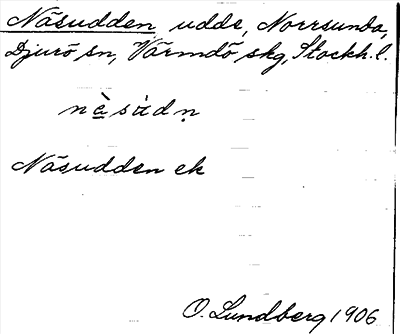 Näsudden udde, Norrsunda,
Djurö sn, Värmdö skg, Stockh. l.
nè̱sùdṇ
Näsudden ek
O. Lundberg 1906